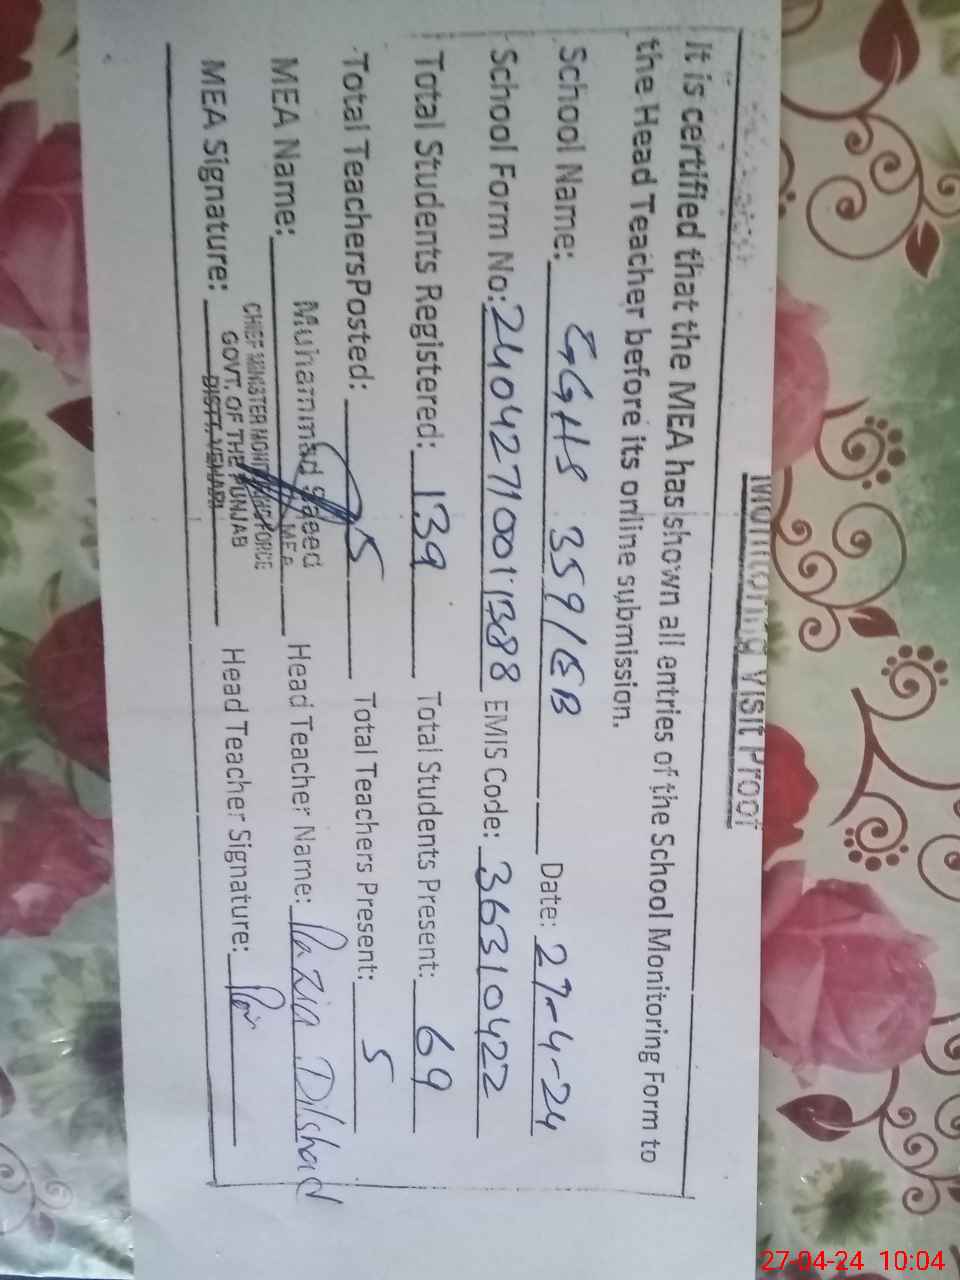 Monitoring Visit Proof
It is certified that the MEA has shown all entries of the School Monitoring Form to
the Head Teacher before its online submission.
School Name: GGHS 359/EB Date: 27-4-24
School Form No: 24042710011388 EMIS Code: 36310422
Total Students Registered: 139 Total Students Present: 69
Total TeachersPosted: 5 Total Teachers Present: 5
MEA Name: Muhammad Saeed Head Teacher Name: Razia Dilshad
M.E.A
CHIEF MINISTER MONITORING FORCE
MEA Signature: Head Teacher Signature:
GOVT. OF THE PUNJAB
DISTT. VEHARI
27-04-24 10:04